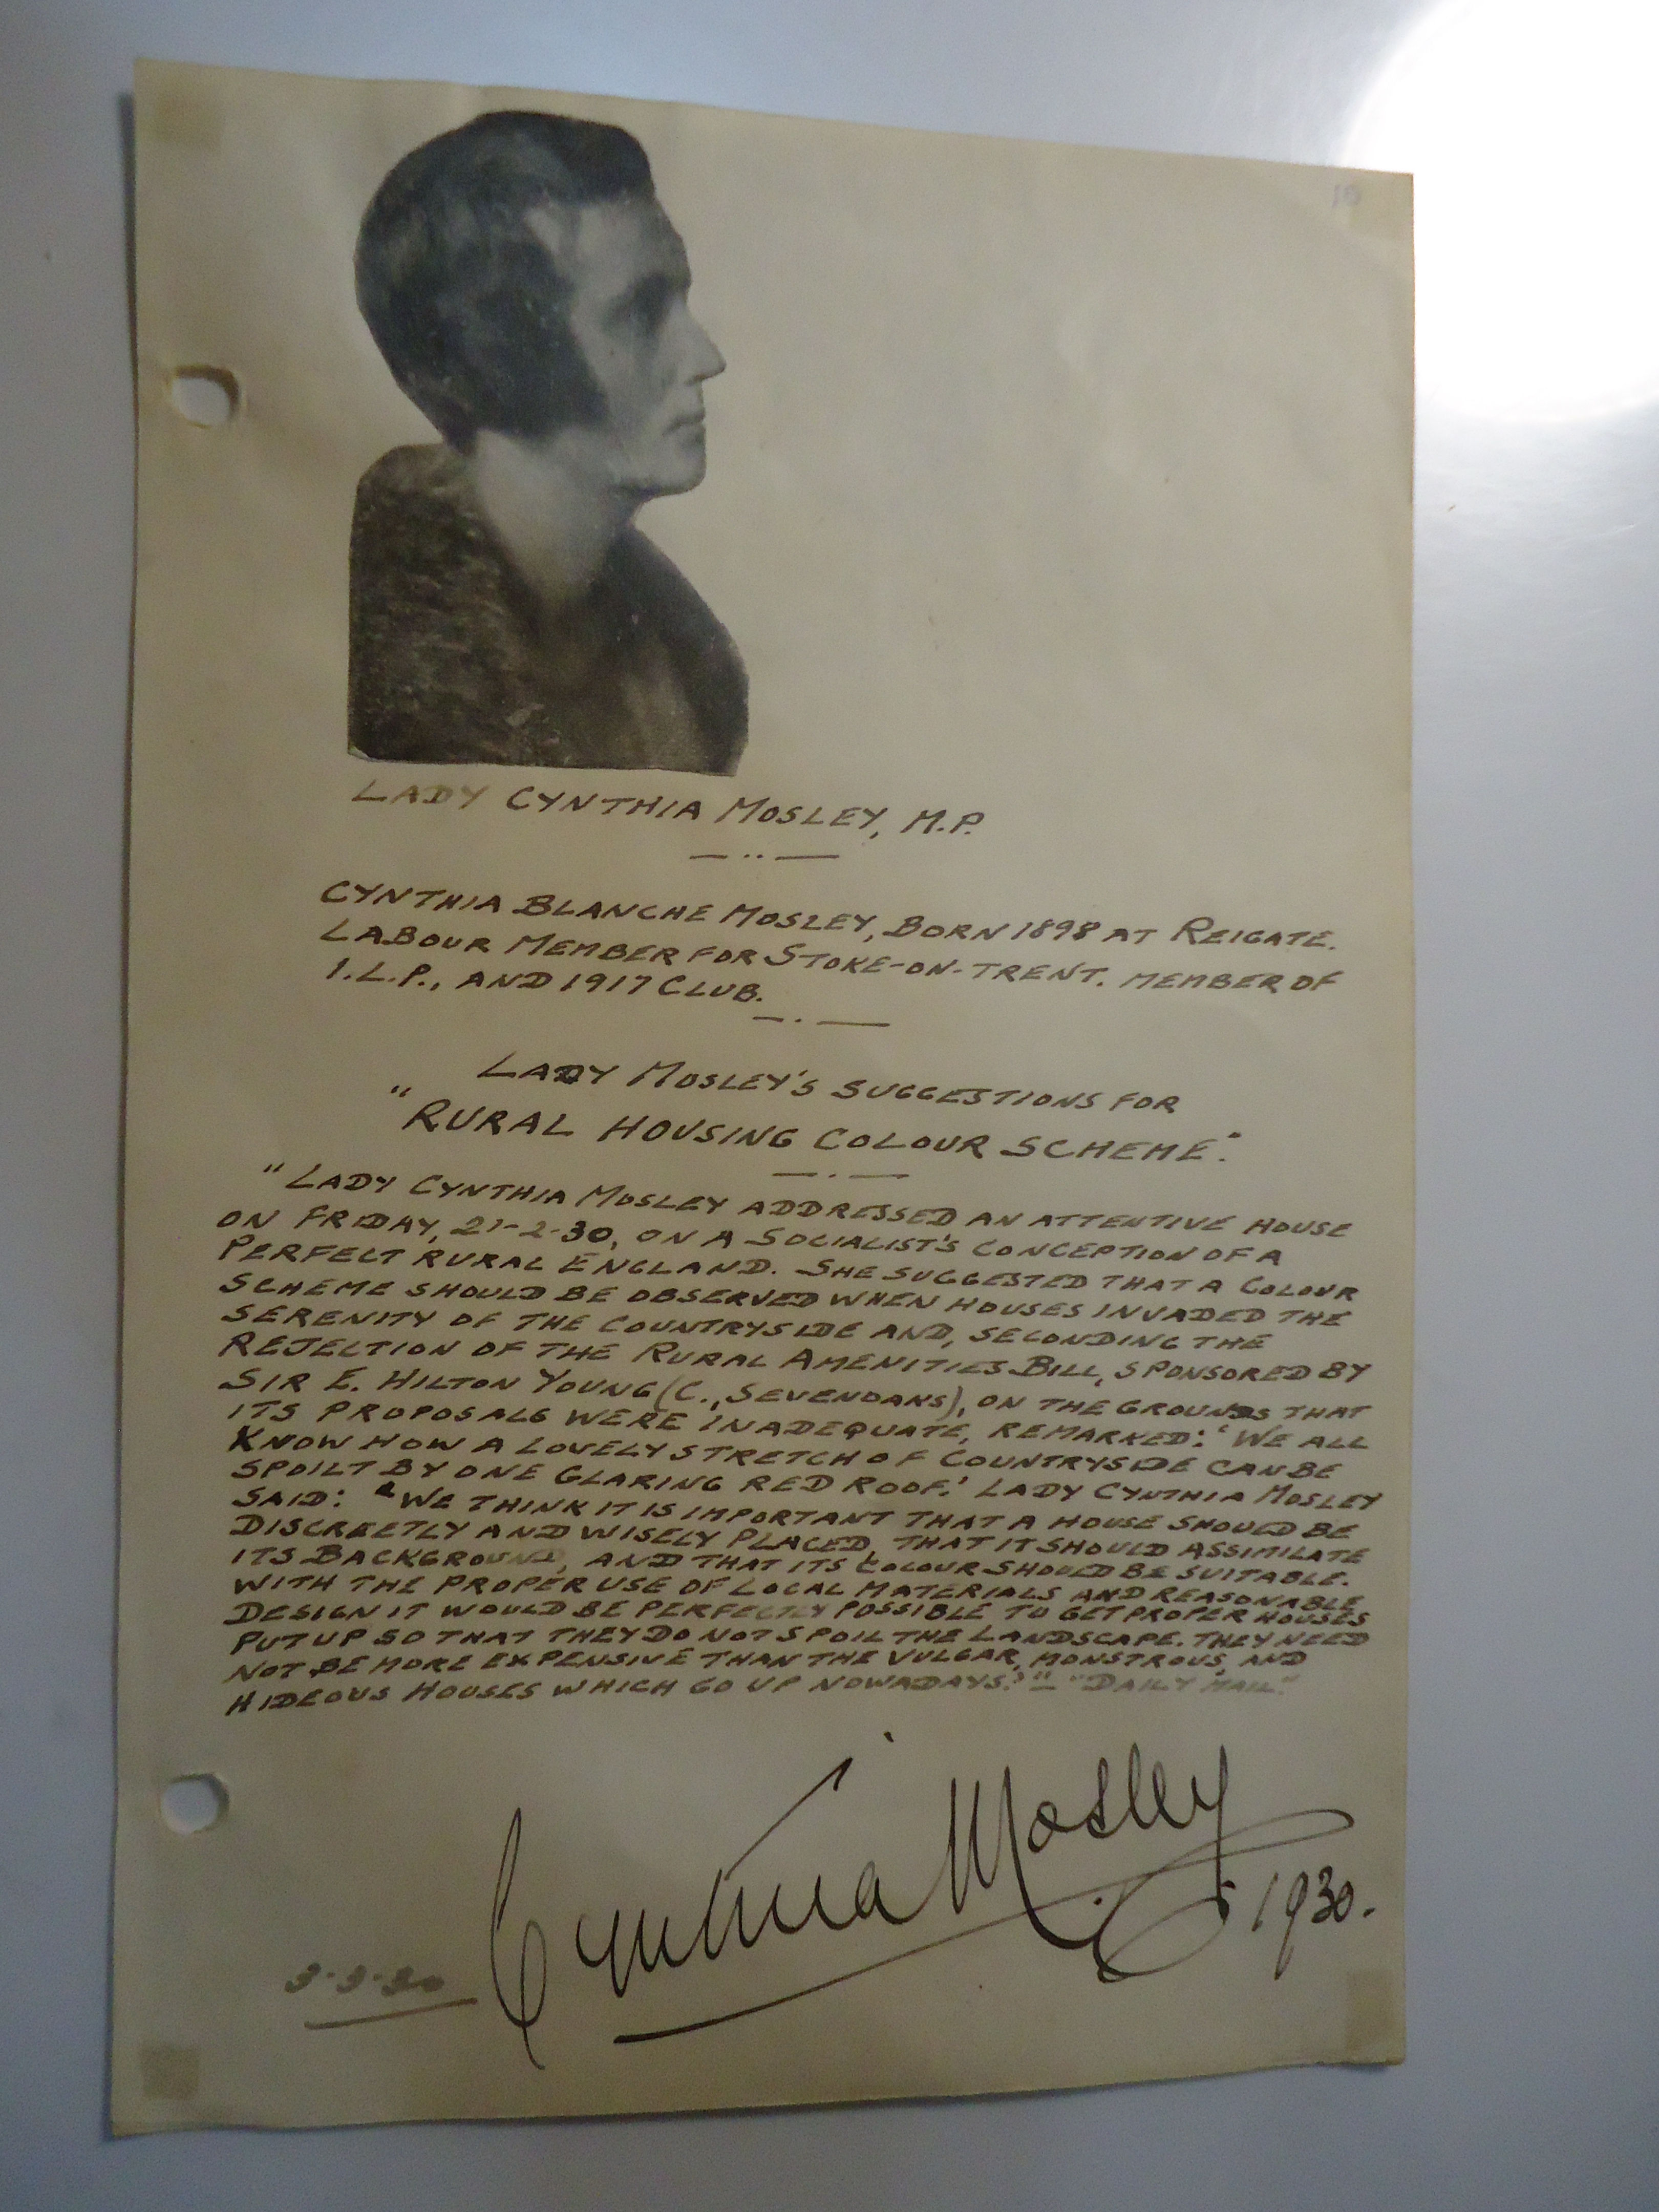 10
LADY CYNTHIA MOSLEY, M.P.
CYNTHIA BLANCHE MOSLEY, BORN 1898 AT REIGATE.
LABOUR MEMBER FOR STOKE-ON-TRENT. MEMBER OF
I.L.P., AND 1917 CLUB.
LADY MOSLEY'S SUGGESTIONS FOR
"RURAL HOUSING COLOUR SCHEME".
"LADY CYNTHIA MOSLEY ADDRESSED AN ATTENTIVE HOUSE
ON FRIDAY, 21-2-30, ON A SOCIALIST'S CONCEPTION OF A
PERFECT RURAL ENGLAND. SHE SUGGESTED THAT A COLOUR
SCHEME SHOULD BE OBSERVED WHEN HOUSES INVADED THE
SERENITY OF THE COUNTRYSIDE AND, SECONDING THE
REJECTION OF THE RURAL AMENITIES BILL, SPONSORED BY
SIR E. HILTON YOUNG (C., SEVENOAKS), ON THE GROUNDS THAT
ITS PROPOSALS WERE INADEQUATE, REMARKED: 'WE ALL
KNOW HOW A LOVELY STRETCH OF COUNTRYSIDE CAN BE
SPOILT BY ONE GLARING RED ROOF.' LADY CYNTHIA MOSLEY
SAID: "WE THINK IT IS IMPORTANT THAT A HOUSE SHOULD BE
DISCREETLY AND WISELY PLACED, THAT IT SHOULD ASSIMILATE
ITS BACKGROUND, AND THAT ITS COLOUR SHOULD BE SUITABLE.
WITH THE PROPER USE OF LOCAL MATERIALS AND REASONABLE
DESIGN IT WOULD BE PERFECTLY POSSIBLE TO GET PROPER HOUSES
PUT UP SO THAT THEY DO NOT SPOIL THE LANDSCAPE. THEY NEED
NOT BE MORE EXPENSIVE THAN THE VULGAR, MONSTROUS, AND
HIDEOUS HOUSES WHICH GO UP NOWADAYS.'" – "DAILY MAIL."
Cynthia Mosley
1930.
3-3-30